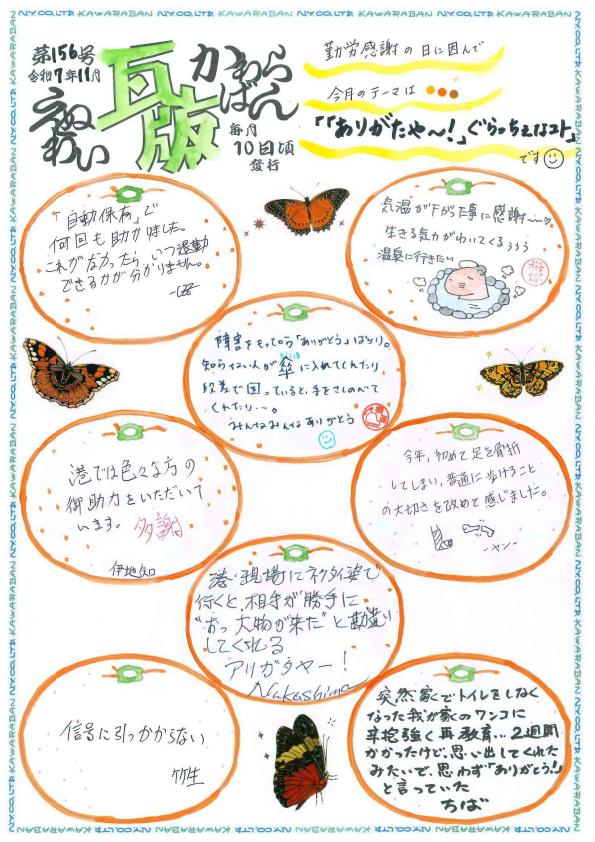 第156号
令和7年11月
えぬわい
瓦版
かわらばん
毎月
10日頃
発行
勤労感謝の日に因んで
今月のテーマは
「「ありがたや〜!」ぐらっちぇなコト」
です
「自動保存」で
何回も助かりました。
これがなかったら、いつ退勤
できるかが分かりません。
気温が下がった事に感謝〜♡
生きる気力がわいてくるぅぅぅ
温泉に行きたい
障害をもってから「ありがとう」ばかり。
知らない人が傘に入れてくれたり
段差で困っていると、手をさしのべて
くれたり…。
みんなみんなありがとう
港では色々な方の
御助力をいただいて
います。多謝
伊地知
今年、初めて足を骨折
してしまい、普通に歩けること
の大切さを改めて感じました。
-ヤン-
港・現場にネクタイ姿で
行くと、相手が勝手に
"おっ大物が来た"と勘違い
してくれる
アリガタヤー!
Nakashima
信号に引っかからない
竹生
突然家でトイレをしなく
なった我が家のワンコに
辛抱強く再教育…2週間
かかったけど、思い出してくれた
みたいで、思わず「ありがとう!」
と言っていた
ちば
N.Y.CO.,LTD. KAWARABAN